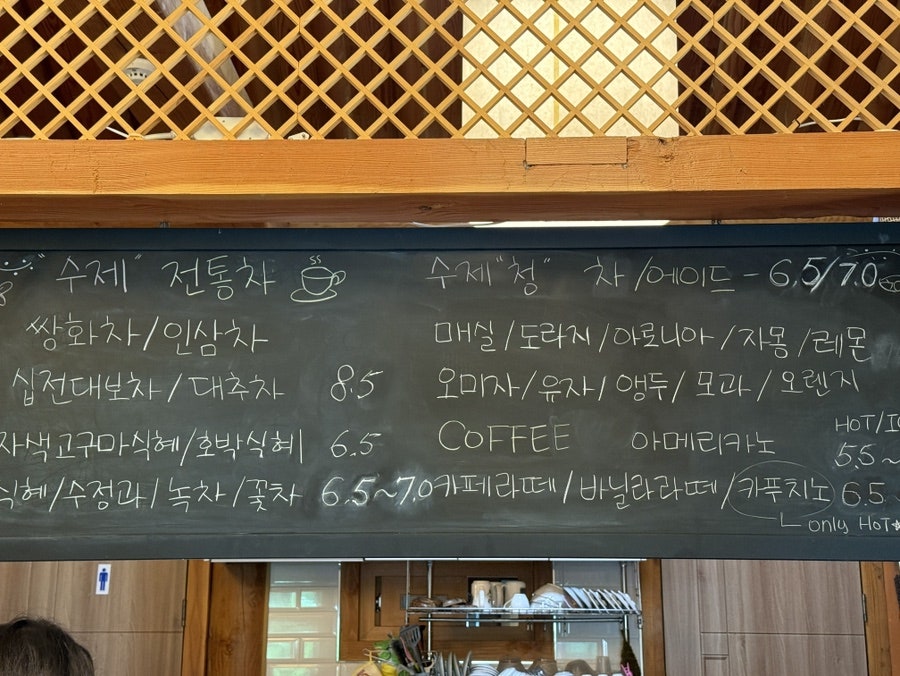 "수제" 전통차
쌍화차/인삼차
십전대보차/대추차 8.5
자색고구마식혜/호박식혜 6.5
식혜/수정과/녹차/꽃차 6.5~7.0
수제"청" 차/에이드 - 6.5/7.0
매실/도라지/아로니아/자몽/레몬
오미자/유자/앵두/모과/오렌지
COFFEE 아메리카노 HOT/
5.5~
카페라떼/바닐라라떼/카푸치노 6.5~
only HOT